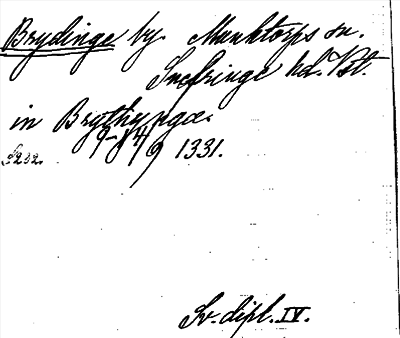 Brydinge by. Munktorps sn.
Snefringe hd. Vst.
in Brythyngæ.
9-14/9 1331.
S232.
Sv. dipl. IV.